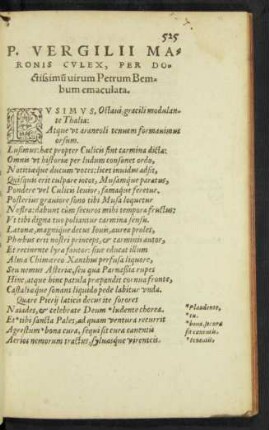 525
P. VERGILII MA-
RONIS CVLEX, PER DO-
ctissimū uirum Petrum Bem-
bum emaculata.
LVSIMVS, Octaui, gracili modulan-
te Thalia:
Atque ut araneoli tenuem formauimus
orsum.
Lusimus: hæc propter Culicis sint carmina dicta:
Omnis ut historiæ per ludum consonet ordo,
Notitiæque ducum uoces: licet inuidus adsit,
Quisquis erit culpare iocos, Musamque paratus,
Pondere uel Culicis leuior, famaque feretur.
Posterius grauiore sono tibi Musa loquetur
Nostra: dabunt cùm securos mihi tempora fructus:
Vt tibi digna tuo poliantur carmina sensu.
Latonæ, magnique decus Iouis, aurea proles,
Phœbus erit nostri princeps, & carminis autor,
Et recinente lyra fautor: siue educat illum
Alma Chimæreo Xanthus perfusa liquore,
Seu nemus Asteriæ, seu qua Parnassia rupes
Hinc atque hinc patula præpandit cornua fronte,
Castaliæque sonans liquido pede labitur unda.
Quare Pierij laticis decus ite sorores
Naiades, & celebrate Deum *ludente chorea.
*Plaudente,
Et *tibi sancta Pales, ad quam uentura recurrit
*tu.
Agrestum *bona cura, sequi sit cura tenentis
*bona, secura
sit tenentis.
Aërios nemorum tractus, syluasque uirentes.